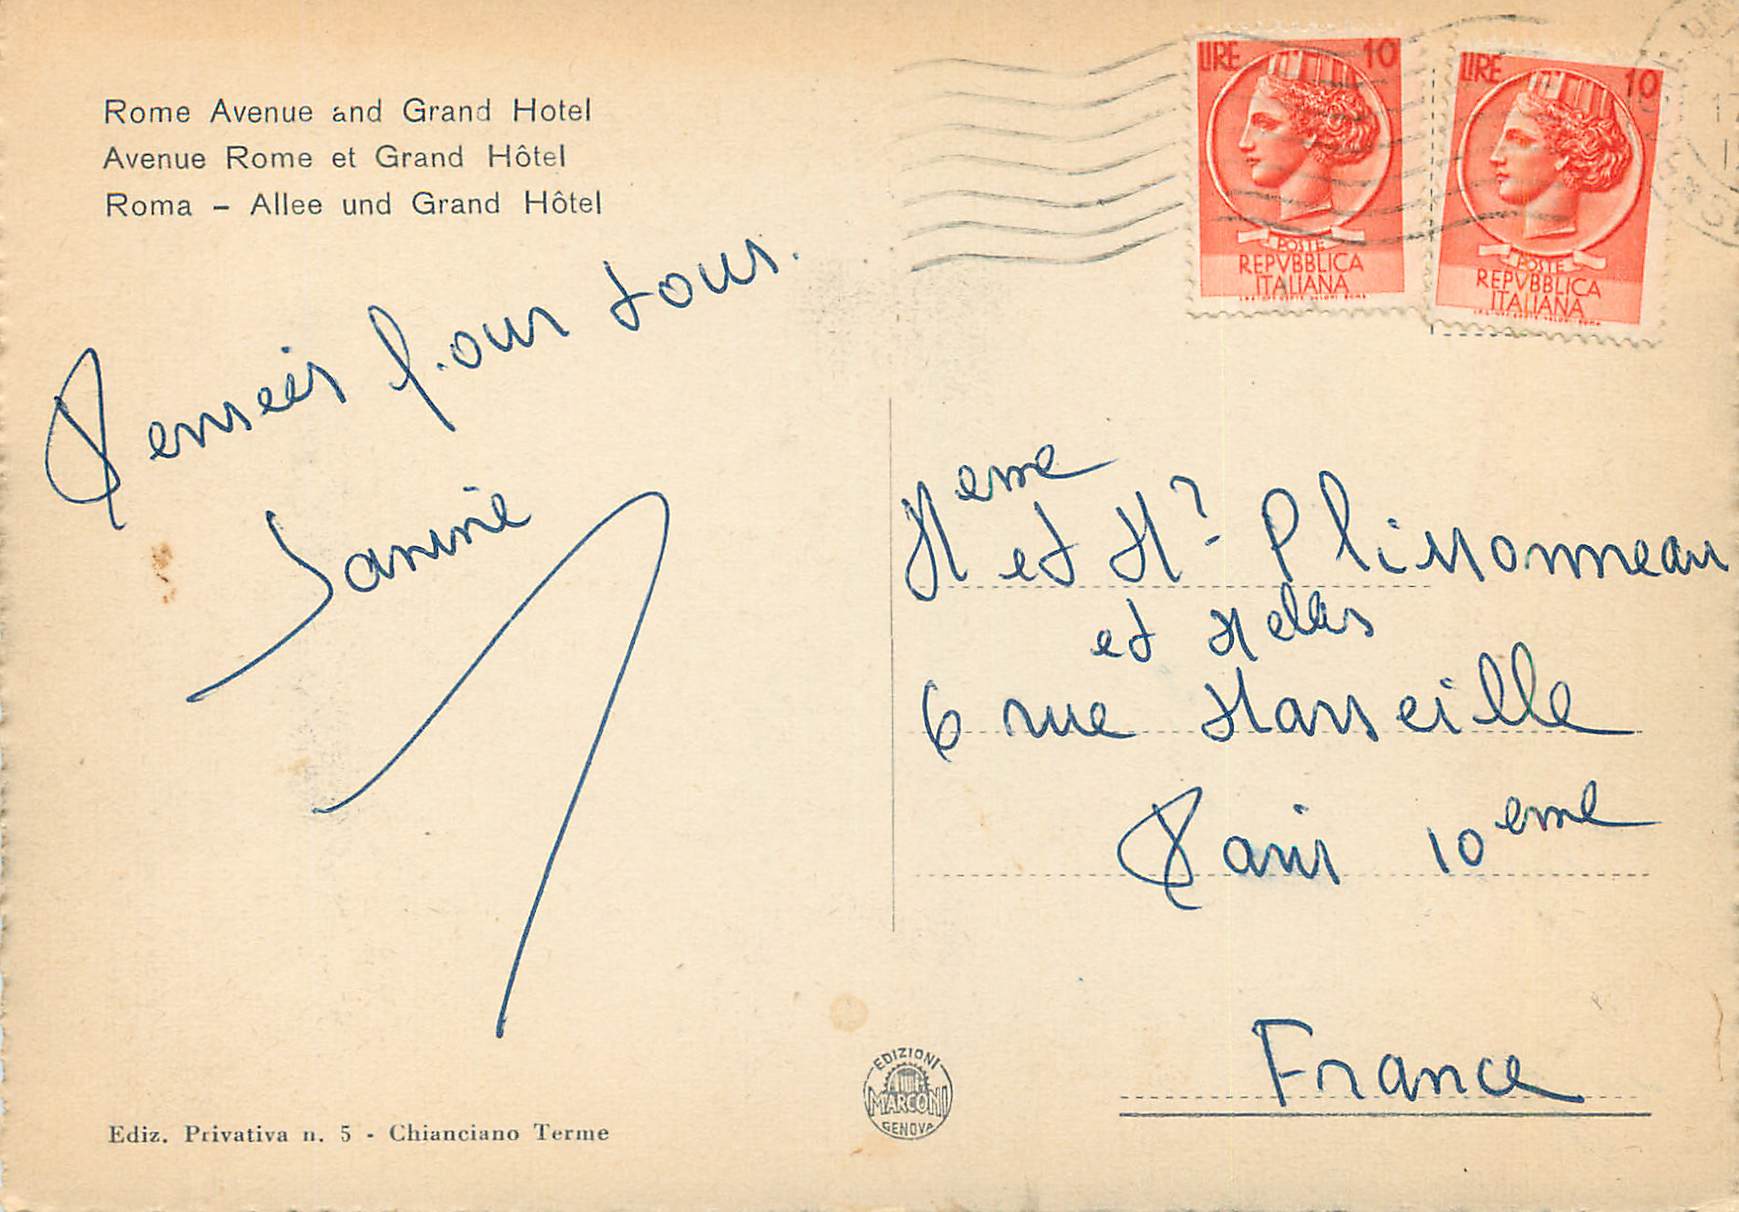 Rome Avenue and Grand Hotel
Avenue Rome et Grand Hôtel
Roma – Allee und Grand Hôtel
Pensées pour tous.
Janine
LIRE 10
POSTE
REPVBBLICA
ITALIANA
LIRE 10
POSTE
REPVBBLICA
ITALIANA
Meme et Mr Plissonneau
et
6 rue Marseille
Paris 10eme
France
EDIZIONI
MARCONI
GENOVA
Ediz. Privativa n. 5 - Chianciano Terme